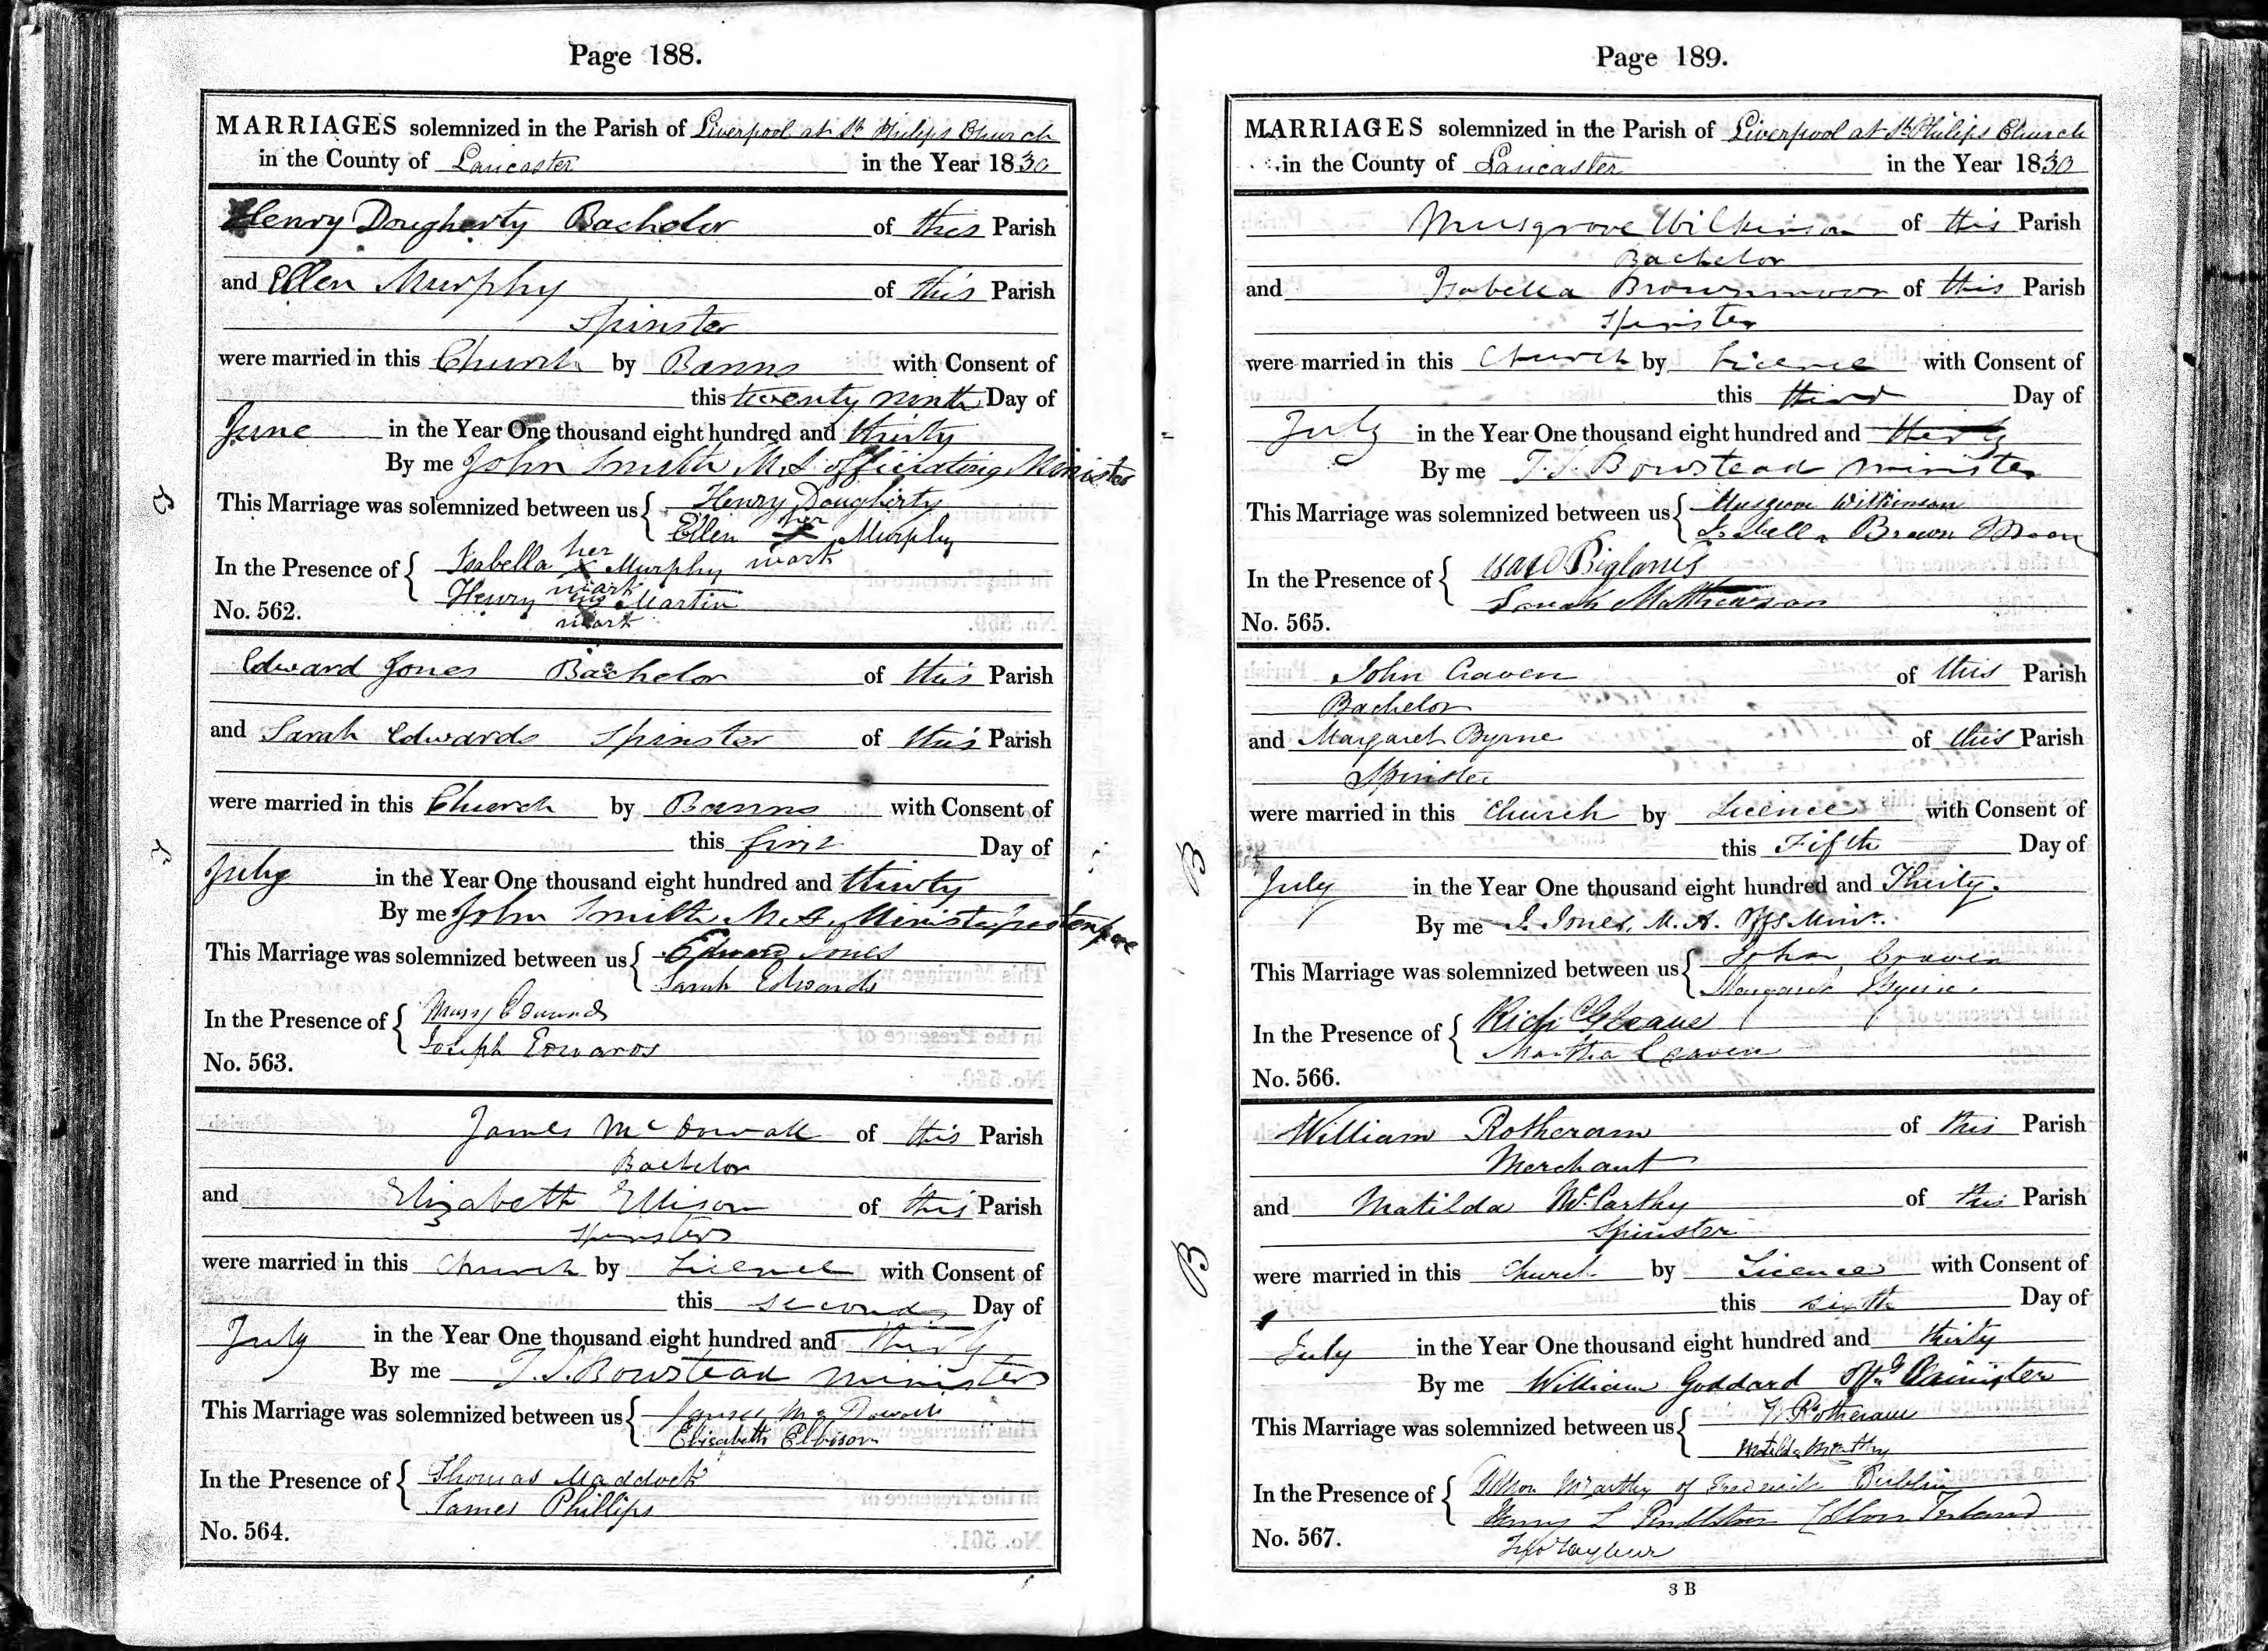 Page 188.
MARRIAGES solemnized in the Parish of Liverpool at St Philips Church
in the County of Lancaster in the Year 1830
Henry Dougherty Bachelor of this Parish
and Ellen Murphy of this Parish
Spinster
were married in this Church by Banns with Consent of
this twenty ninth Day of
June in the Year One thousand eight hundred and thirty
By me John Smith M.A. officiating Minister
This Marriage was solemnized between us { Henry Dougherty
Ellen her X Murphy
mark
In the Presence of { Isabella her X Murphy
mark
Henry his X Martin
mark
No. 562.
Edward Jones Bachelor of this Parish
and Sarah Edwards Spinster of this Parish
were married in this Church by Banns with Consent of
this first Day of
July in the Year One thousand eight hundred and thirty
By me John Smith M.A. Minister pro tempore
This Marriage was solemnized between us { Edward Jones
Sarah Edwards
In the Presence of { Mary Edwards
Joseph Edwards
No. 563.
James McDowall of this Parish
Bachelor
and Elizabeth Ellison of this Parish
Spinster
were married in this Church by Licence with Consent of
this second Day of
July in the Year One thousand eight hundred and thirty
By me T.S. Bowstead Minister
This Marriage was solemnized between us { James McDowall
Elizabeth Ellison
In the Presence of { Thomas Maddock
James Phillips
No. 564.
Page 189.
MARRIAGES solemnized in the Parish of Liverpool at St Philips Church
in the County of Lancaster in the Year 1830
Musgrove Wilkinson of this Parish
Bachelor
and Isabella Brownmoor of this Parish
Spinster
were married in this Church by Licence with Consent of
this third Day of
July in the Year One thousand eight hundred and thirty
By me T.S. Bowstead Minister
This Marriage was solemnized between us { Musgrove Wilkinson
Isabella Brown Moor
In the Presence of { Isaac Biglands
Sarah Matthewson
No. 565.
John Craven of this Parish
Bachelor
and Margaret Byrne of this Parish
Spinster
were married in this Church by Licence with Consent of
this Fifth Day of
July in the Year One thousand eight hundred and Thirty.
By me J. Jones, M.A. Offg Minr.
This Marriage was solemnized between us { John Craven
Margaret Byrne
In the Presence of { Richd Gleave
Martha Craven
No. 566.
William Rotheram of this Parish
Merchant
and Matilda McCarthy of this Parish
Spinster
were married in this Church by Licence with Consent of
this sixth Day of
July in the Year One thousand eight hundred and thirty
By me William Goddard Offg Minister
This Marriage was solemnized between us { W Rotheram
Matilda McCarthy
In the Presence of { McCarthy of Dublin
Henry L
No. 567.
3 B